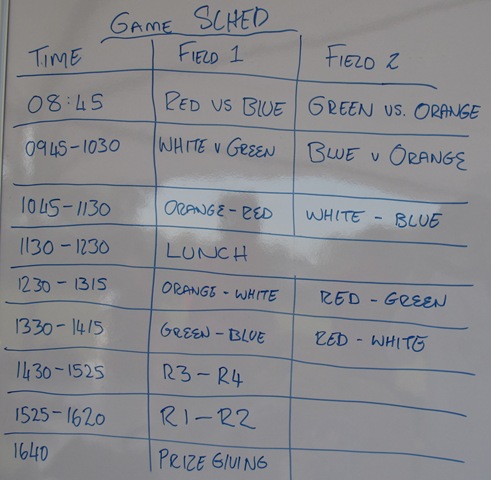 GAME SCHED
TIME FIELD 1 FIELD 2
08:45 RED VS BLUE GREEN VS. ORANGE
0945-1030 WHITE V GREEN BLUE V ORANGE
1045-1130 ORANGE-RED WHITE - BLUE
1130-1230 LUNCH
1230-1315 ORANGE - WHITE RED - GREEN
1330-1415 GREEN-BLUE RED - WHITE
1430-1525 R3-R4
1525-1620 R1-R2
1640 PRIZE GIVING